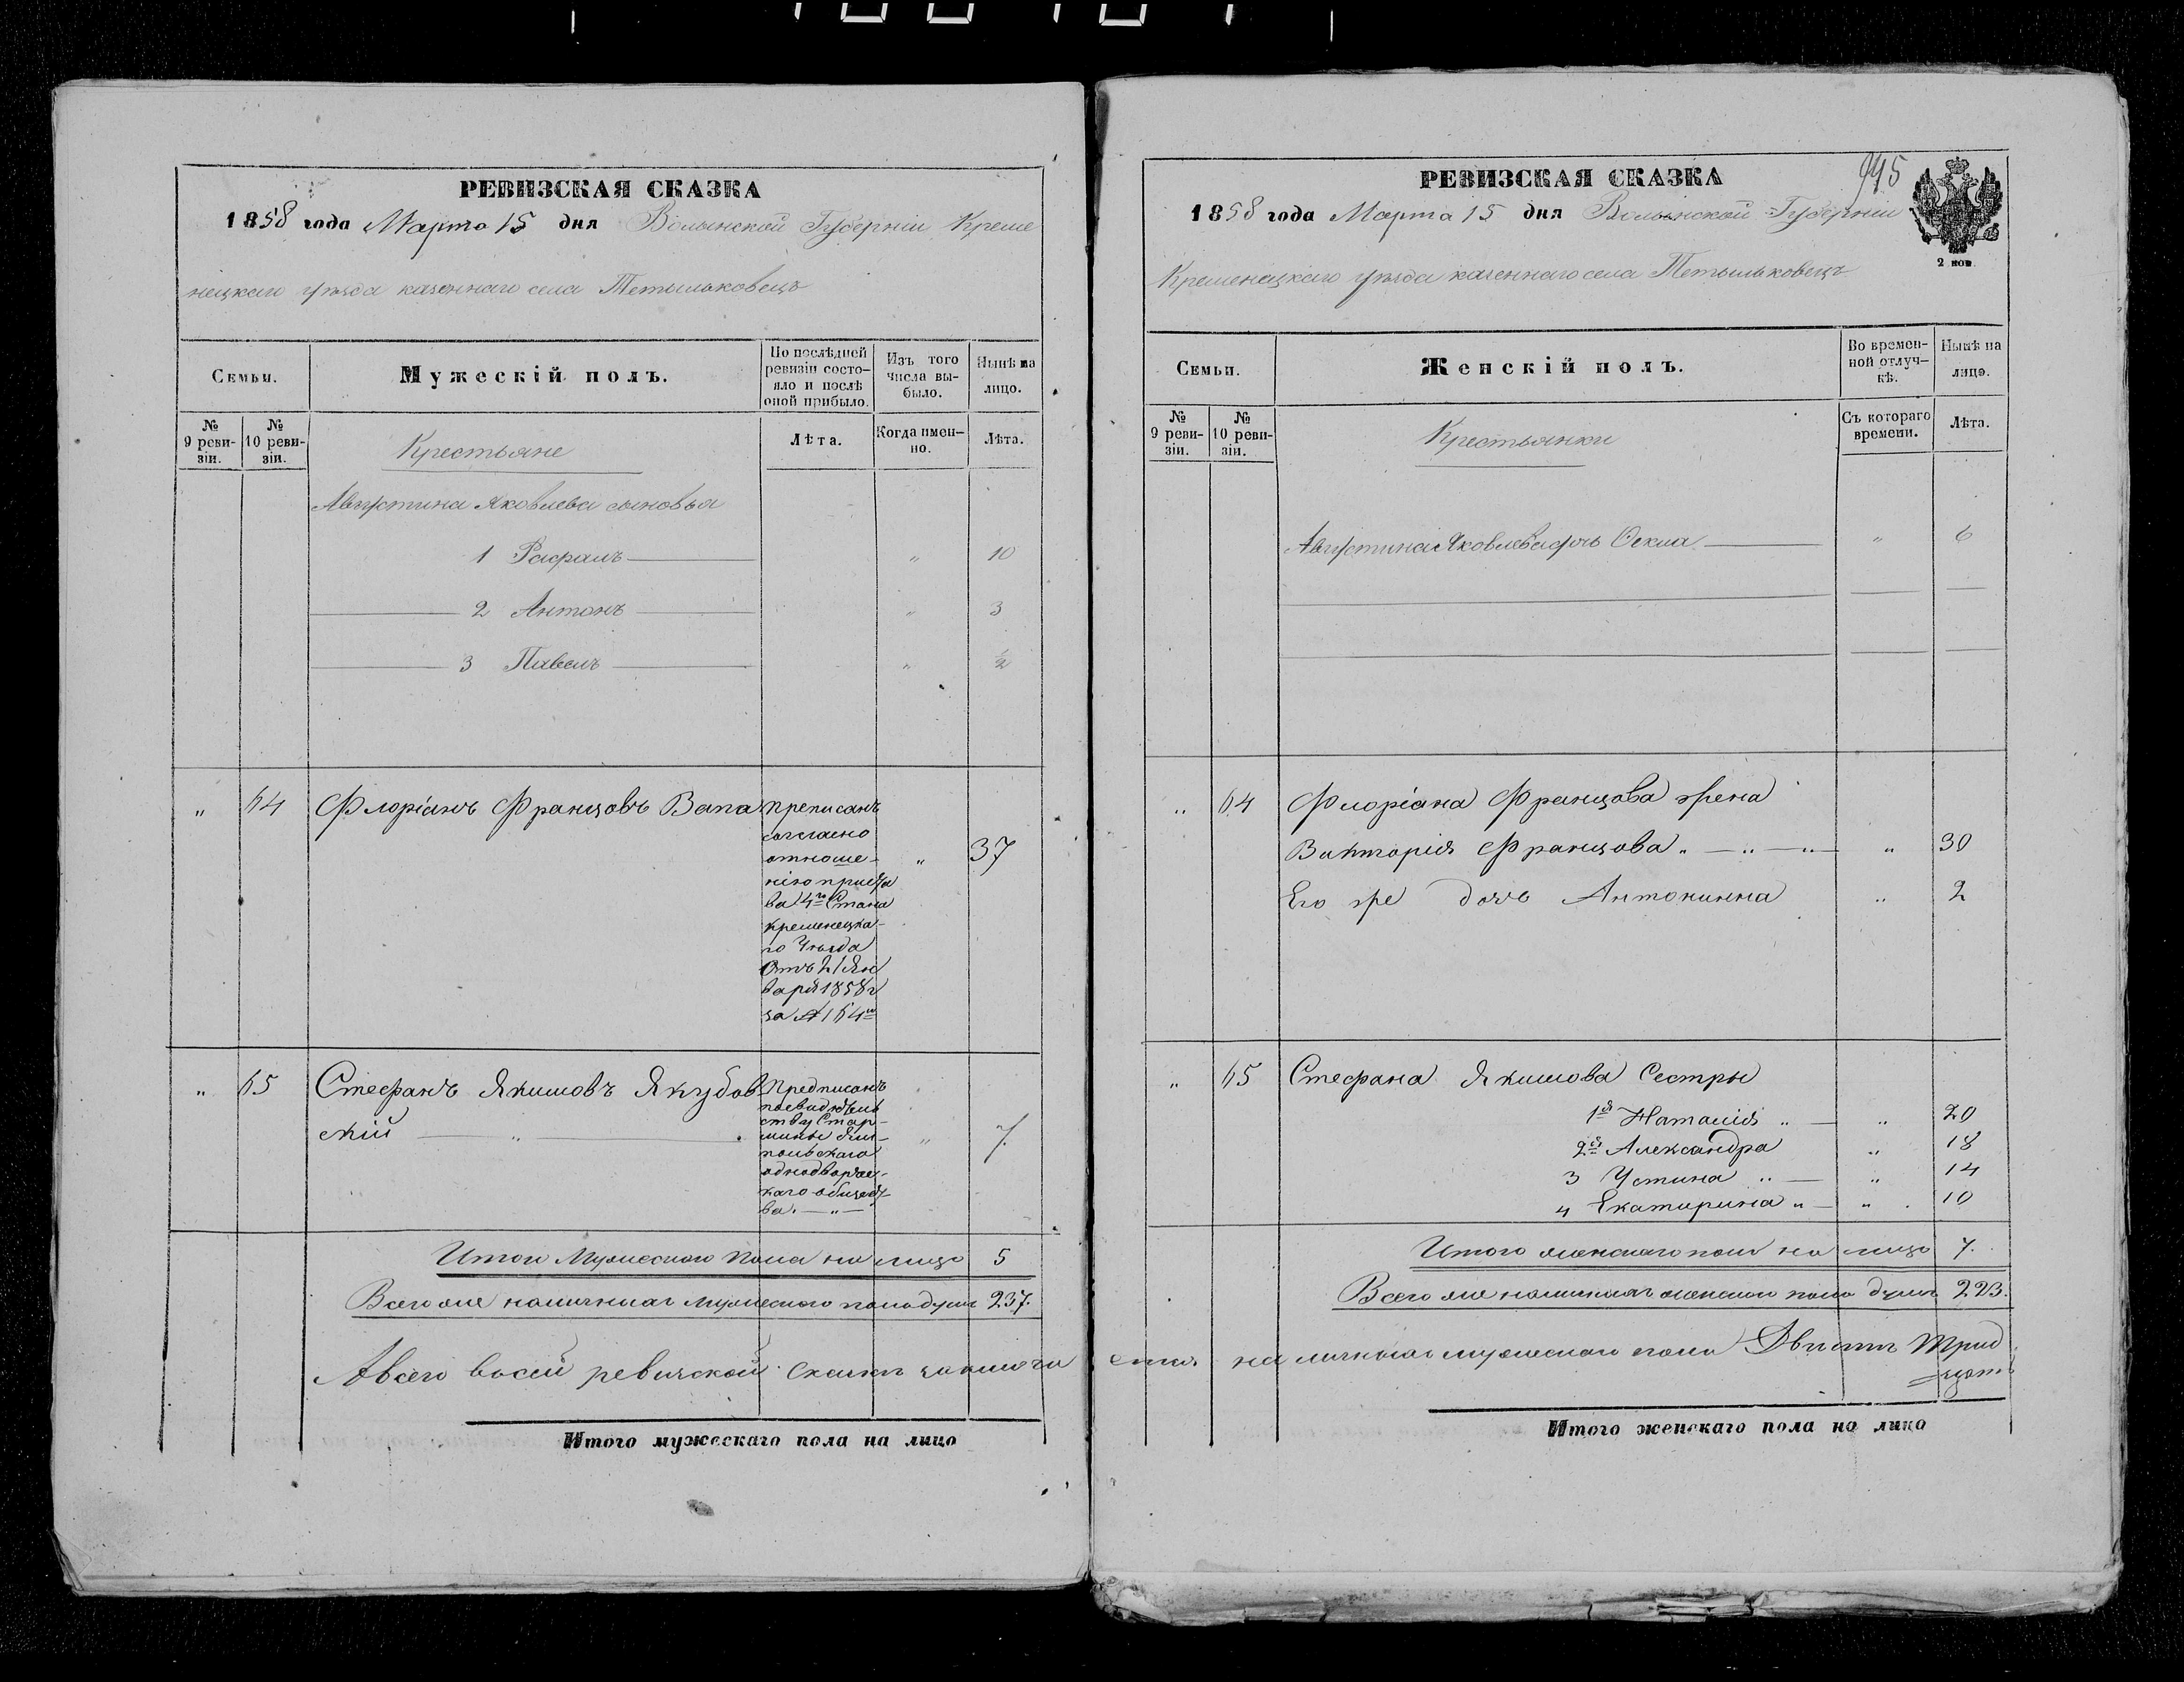 РЕВИЗСКАЯ СКАЗКА
1858 года Марта 15 дня Волынской Губерніи Креме
нецкаго уѣзда казеннаго села Тетыльковецъ
Семьи.
Мужескій полъ.
По послѣдней ревизіи состо-
яло и послѣ оной прибыло.
Изъ того числа вы-
было.
Нынѣ на лицо.
№ 9 реви-
зіи.
№ 10 реви-
зіи.
Крестьяне
Лѣта.
Когда имен-
но.
Лѣта.
Августина Яковлева сыновья
1 Рафалъ " 10
2 Антонъ " 3
3 Павелъ " 1/2
" 64 Флоріанъ Францовъ Вапа " 37
Преписанъ
согласно
отноше-
нію приста
ва 4го Стана
кременецка-
го Уѣзда
Отъ 21 Ян
варя 1858 г
за № 164м
" 65 Стефанъ Якимовъ Якубов-
скій " " 7
Предписанъ
старшины
однодворчес-
каго общест
ва. "
Итого Мужескаго Пола на лицо 5
Всего же наличныхъ мужескаго пола душъ 237.
А всего в сей ревизской сказкѣ заключа
Итого мужескаго пола на лицо
945
РЕВИЗСКАЯ СКАЗКА
1858 года Марта 15 дня Волынской Губерніи
Кременецкаго уѣзда казеннаго села Тетыльковецъ
2 коп
Семьи.
Женскій полъ.
Во времен-
ной отлуч-
кѣ.
Нынѣ на лицо.
№ 9 реви-
зіи.
№ 10 реви-
зіи.
Крестьянки
Съ котораго времени.
Лѣта.
Августина Яковлева дочь Фекла " 6
" 64 Флоріана Францова жена
Викторія Францова " " " 30
Его же дочь Антонинна " 2
" 65 Стефана Якимова Сестры
1я Наталія " " 20
2я Александра " 18
3 Устина " " 14
4 Екатирина " " 10
Итого женскаго пола на лицо 7.
Всего же наличныхъ женскаго пола душъ 223.
ется наличныхъ мужескаго пола Двѣсти трид
цать
Итого женскаго пола на лицо